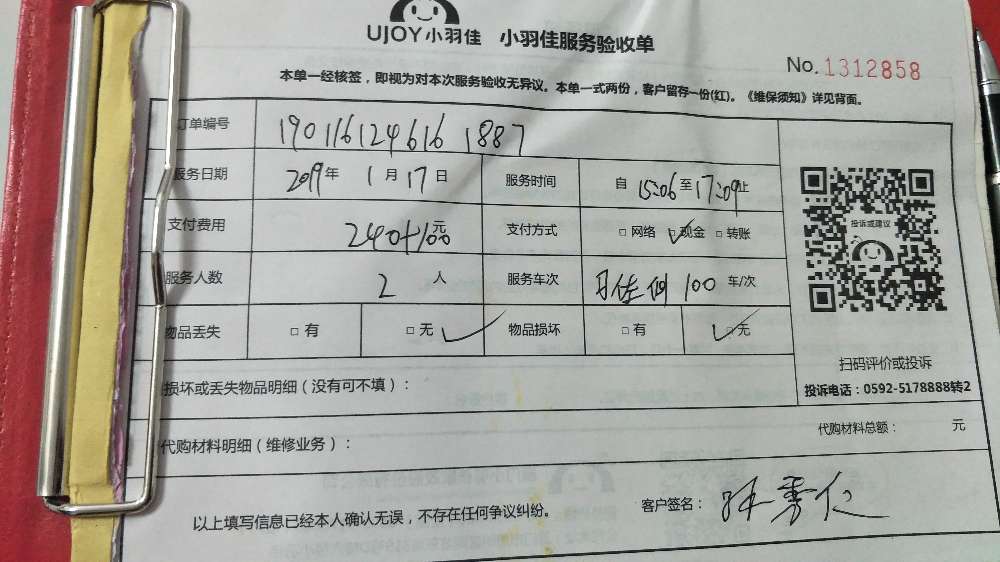 UJOY小羽佳 小羽佳服务验收单
No. 1312858
本单一经核签，即视为对本次服务验收无异议。本单一式两份，客户留存一份(红)。《维保须知》详见背面。
订单编号 190116124616 1887
服务日期 2019年 1月17日 服务时间 自15:06至17:09止
支付费用 240+100元 支付方式 □网络 ☑现金 □转账
服务人数 2人 服务车次 100 车/次
物品丢失 □有 □无 ✓ 物品损坏 □有 ☑无
投诉或建议
扫码评价或投诉
投诉电话：0592-5178888转2
损坏或丢失物品明细（没有可不填）：
代购材料明细（维修业务）：
代购材料总额： 元
以上填写信息已经本人确认无误，不存在任何争议纠纷。
客户签名：